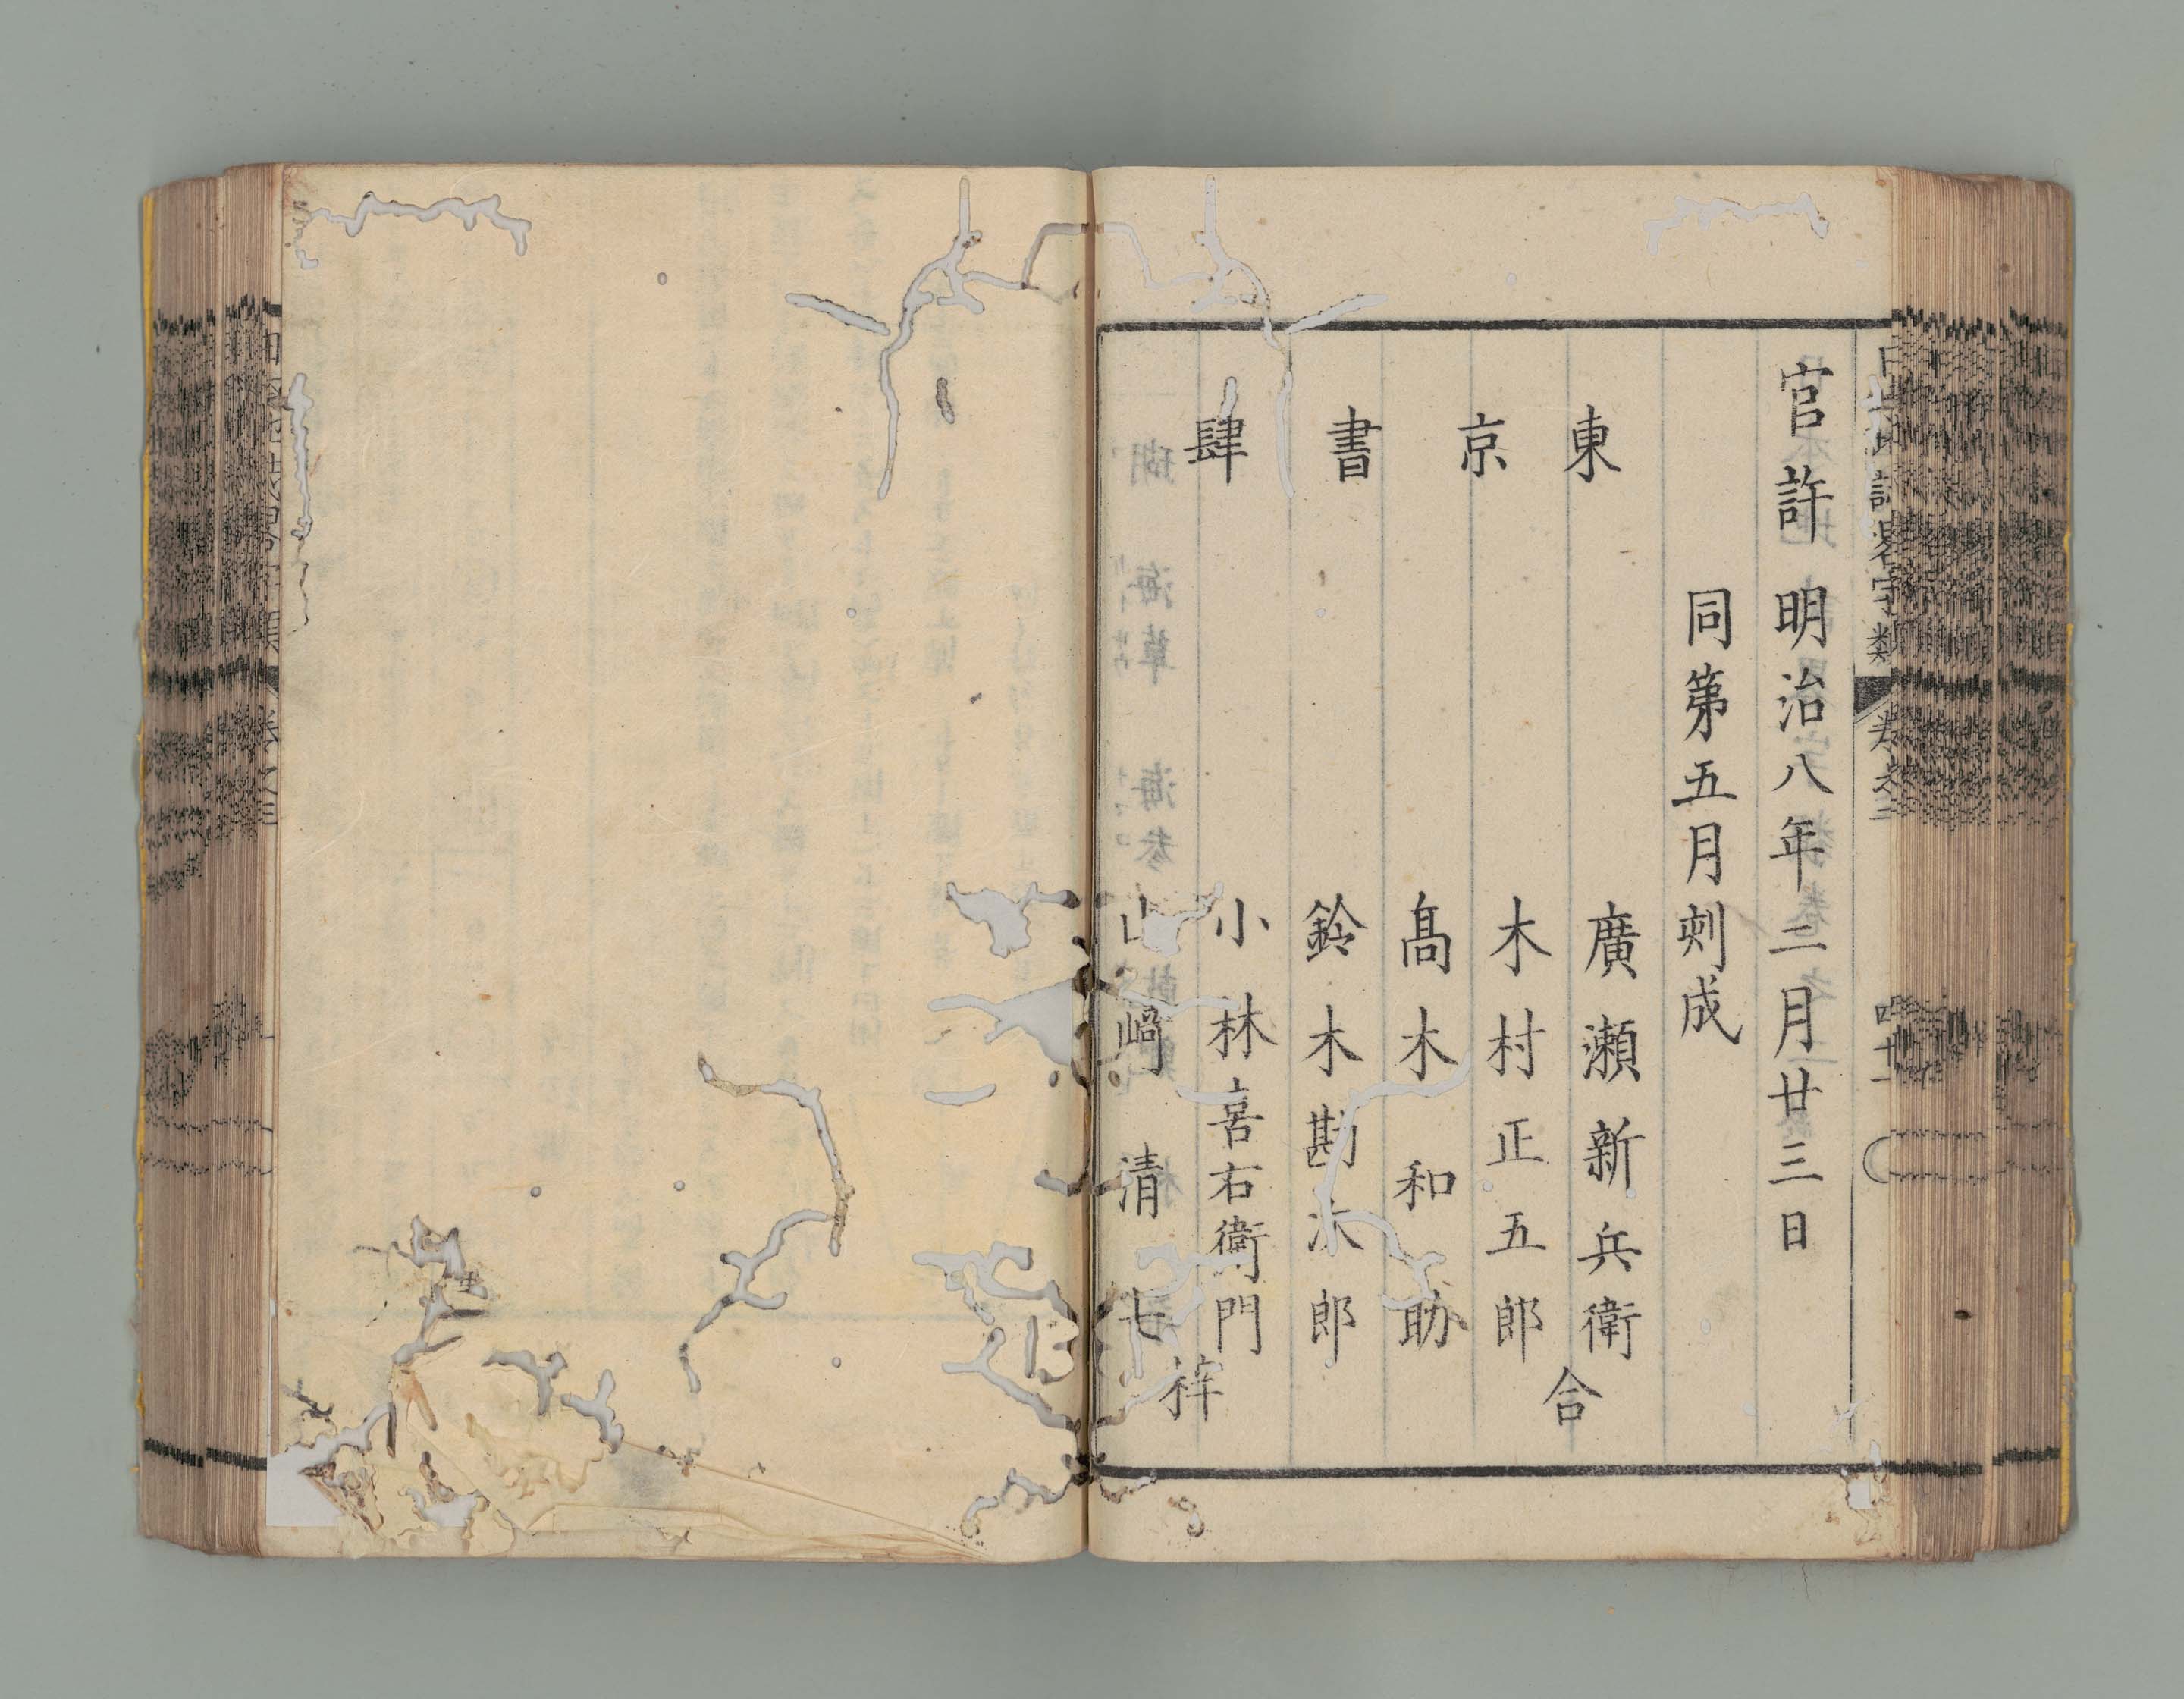 官許明治八年二月廿三日
同第五月刻成
東京書肆
廣瀬新兵衛
木村正五郎
髙木和助
鈴木勘次郎
小林喜右衛門
山﨑清七
合梓